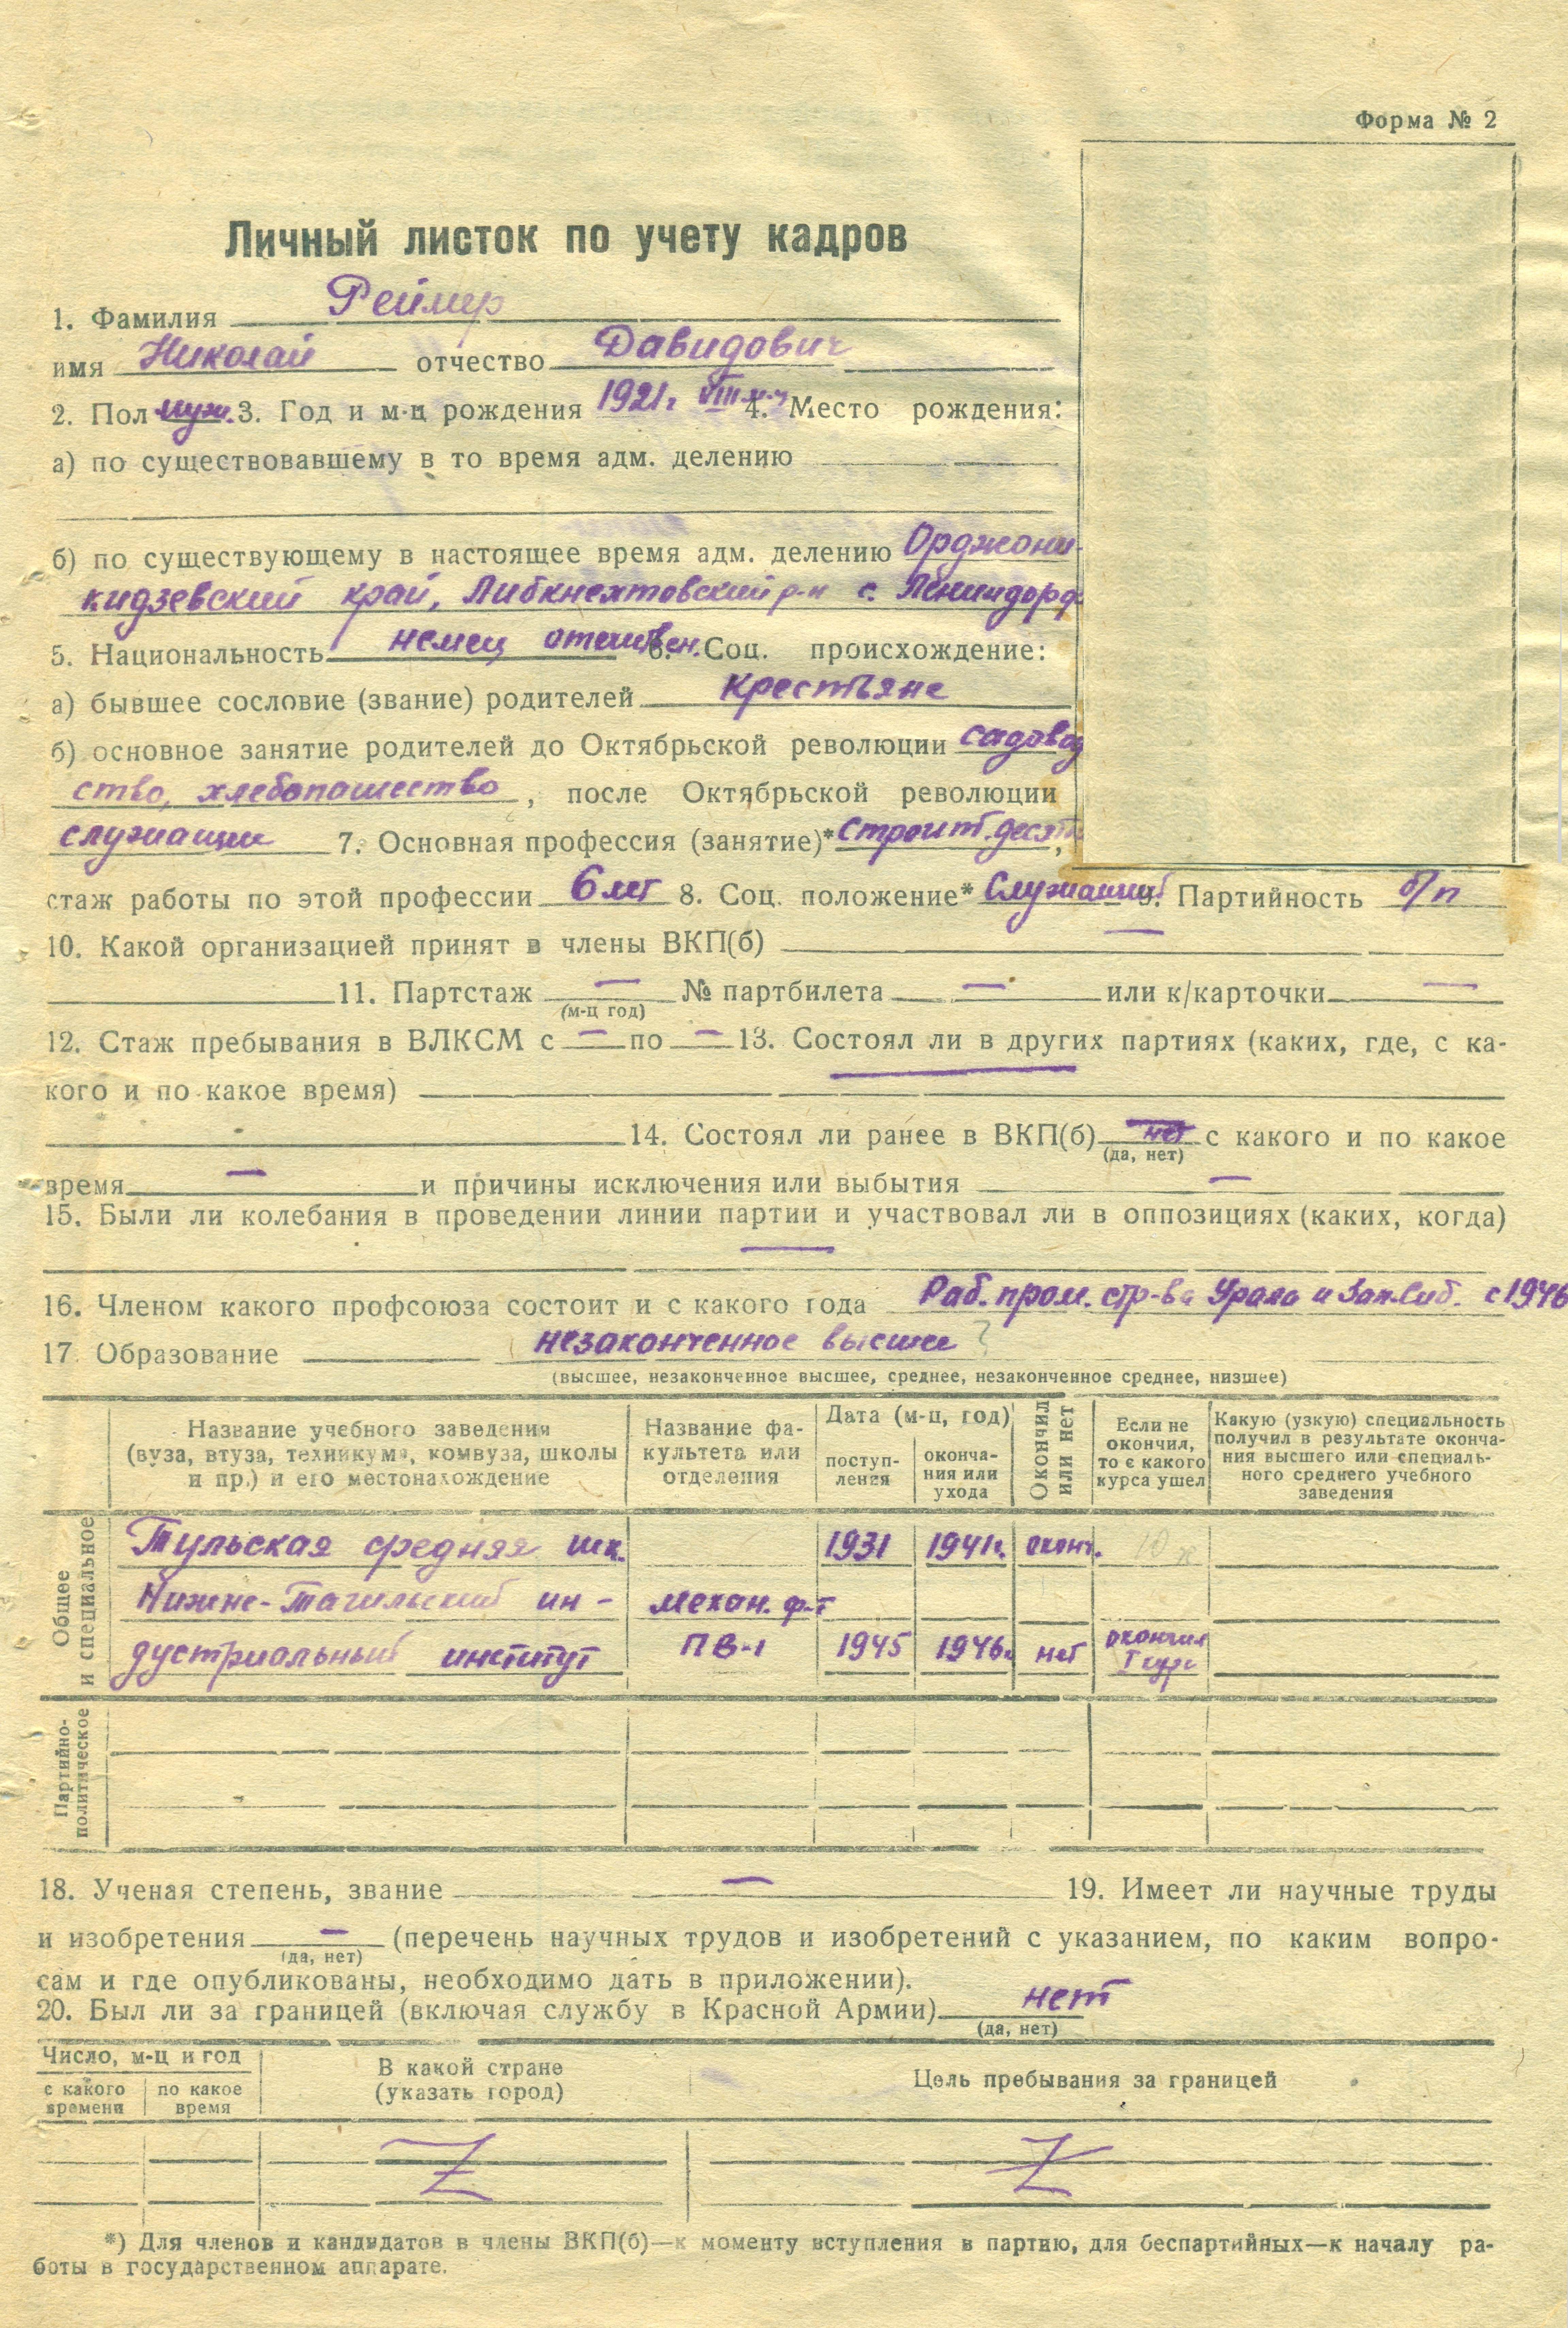 Форма № 2
Личный листок по учету кадров
1. Фамилия Реймер
имя Николай отчество Давидович
2. Пол муж. 3. Год и м-ц рождения 1921г. VIII м-ц 4. Место рождения:
а) по существовавшему в то время адм. делению
б) по существующему в настоящее время адм. делению Орджони-
кидзевский край, Либкнехтовский р-н с. Лениндорф
5. Национальность немец отечествен. 6. Соц. происхождение:
а) бывшее сословие (звание) родителей крестьяне
б) основное занятие родителей до Октябрьской революции садовод
ство, хлебопашество, после Октябрьской революции
служащие 7. Основная профессия (занятие)* строит. десят,
стаж работы по этой профессии 6 лет 8. Соц. положение* Служащий 9. Партийность б/п
10. Какой организацией принят в члены ВКП(б) —
11. Партстаж — № партбилета — или к/карточки —
(м-ц год)
12. Стаж пребывания в ВЛКСМ с — по — 13. Состоял ли в других партиях (каких, где, с ка-
кого и по какое время) —
14. Состоял ли ранее в ВКП(б) нет с какого и по какое
(да, нет)
время — и причины исключения или выбытия —
15. Были ли колебания в проведении линии партии и участвовал ли в оппозициях (каких, когда)
—
16. Членом какого профсоюза состоит и с какого года Раб. пром. стр-ва Урала и Зап. Сиб. с 1946
17. Образование незаконченное высшее ?
(высшее, незаконченное высшее, среднее, незаконченное среднее, низшее)
Название учебного заведения
(вуза, втуза, техникума, комвуза, школы
и пр.) и его местонахождение
Название фа-
культета или
отделения
Дата (м-ц, год)
поступ-
ления
оконча-
ния или
ухода
Окончил
или нет
Если не
окончил,
то с какого
курса ушел
Какую (узкую) специальность
получил в результате оконча-
ния высшего или специаль-
ного среднего учебного
заведения
Общее
и специальное
Тульская средняя шк. 1931 1941г. оконч. 10
Нижне-Тагильский ин- механ. ф-т
дустриальный институт ПВ-1 1945 1946г. нет окончил
I курс
Партийно-
политическое
18. Ученая степень, звание — 19. Имеет ли научные труды
и изобретения — (перечень научных трудов и изобретений с указанием, по каким вопро-
(да, нет)
сам и где опубликованы, необходимо дать в приложении).
20. Был ли за границей (включая службу в Красной Армии) нет
(да, нет)
Число, м-ц и год
с какого
времени
по какое
время
В какой стране
(указать город)
Цель пребывания за границей
*) Для членов и кандидатов в члены ВКП(б)—к моменту вступления в партию, для беспартийных—к началу ра-
боты в государственном аппарате.